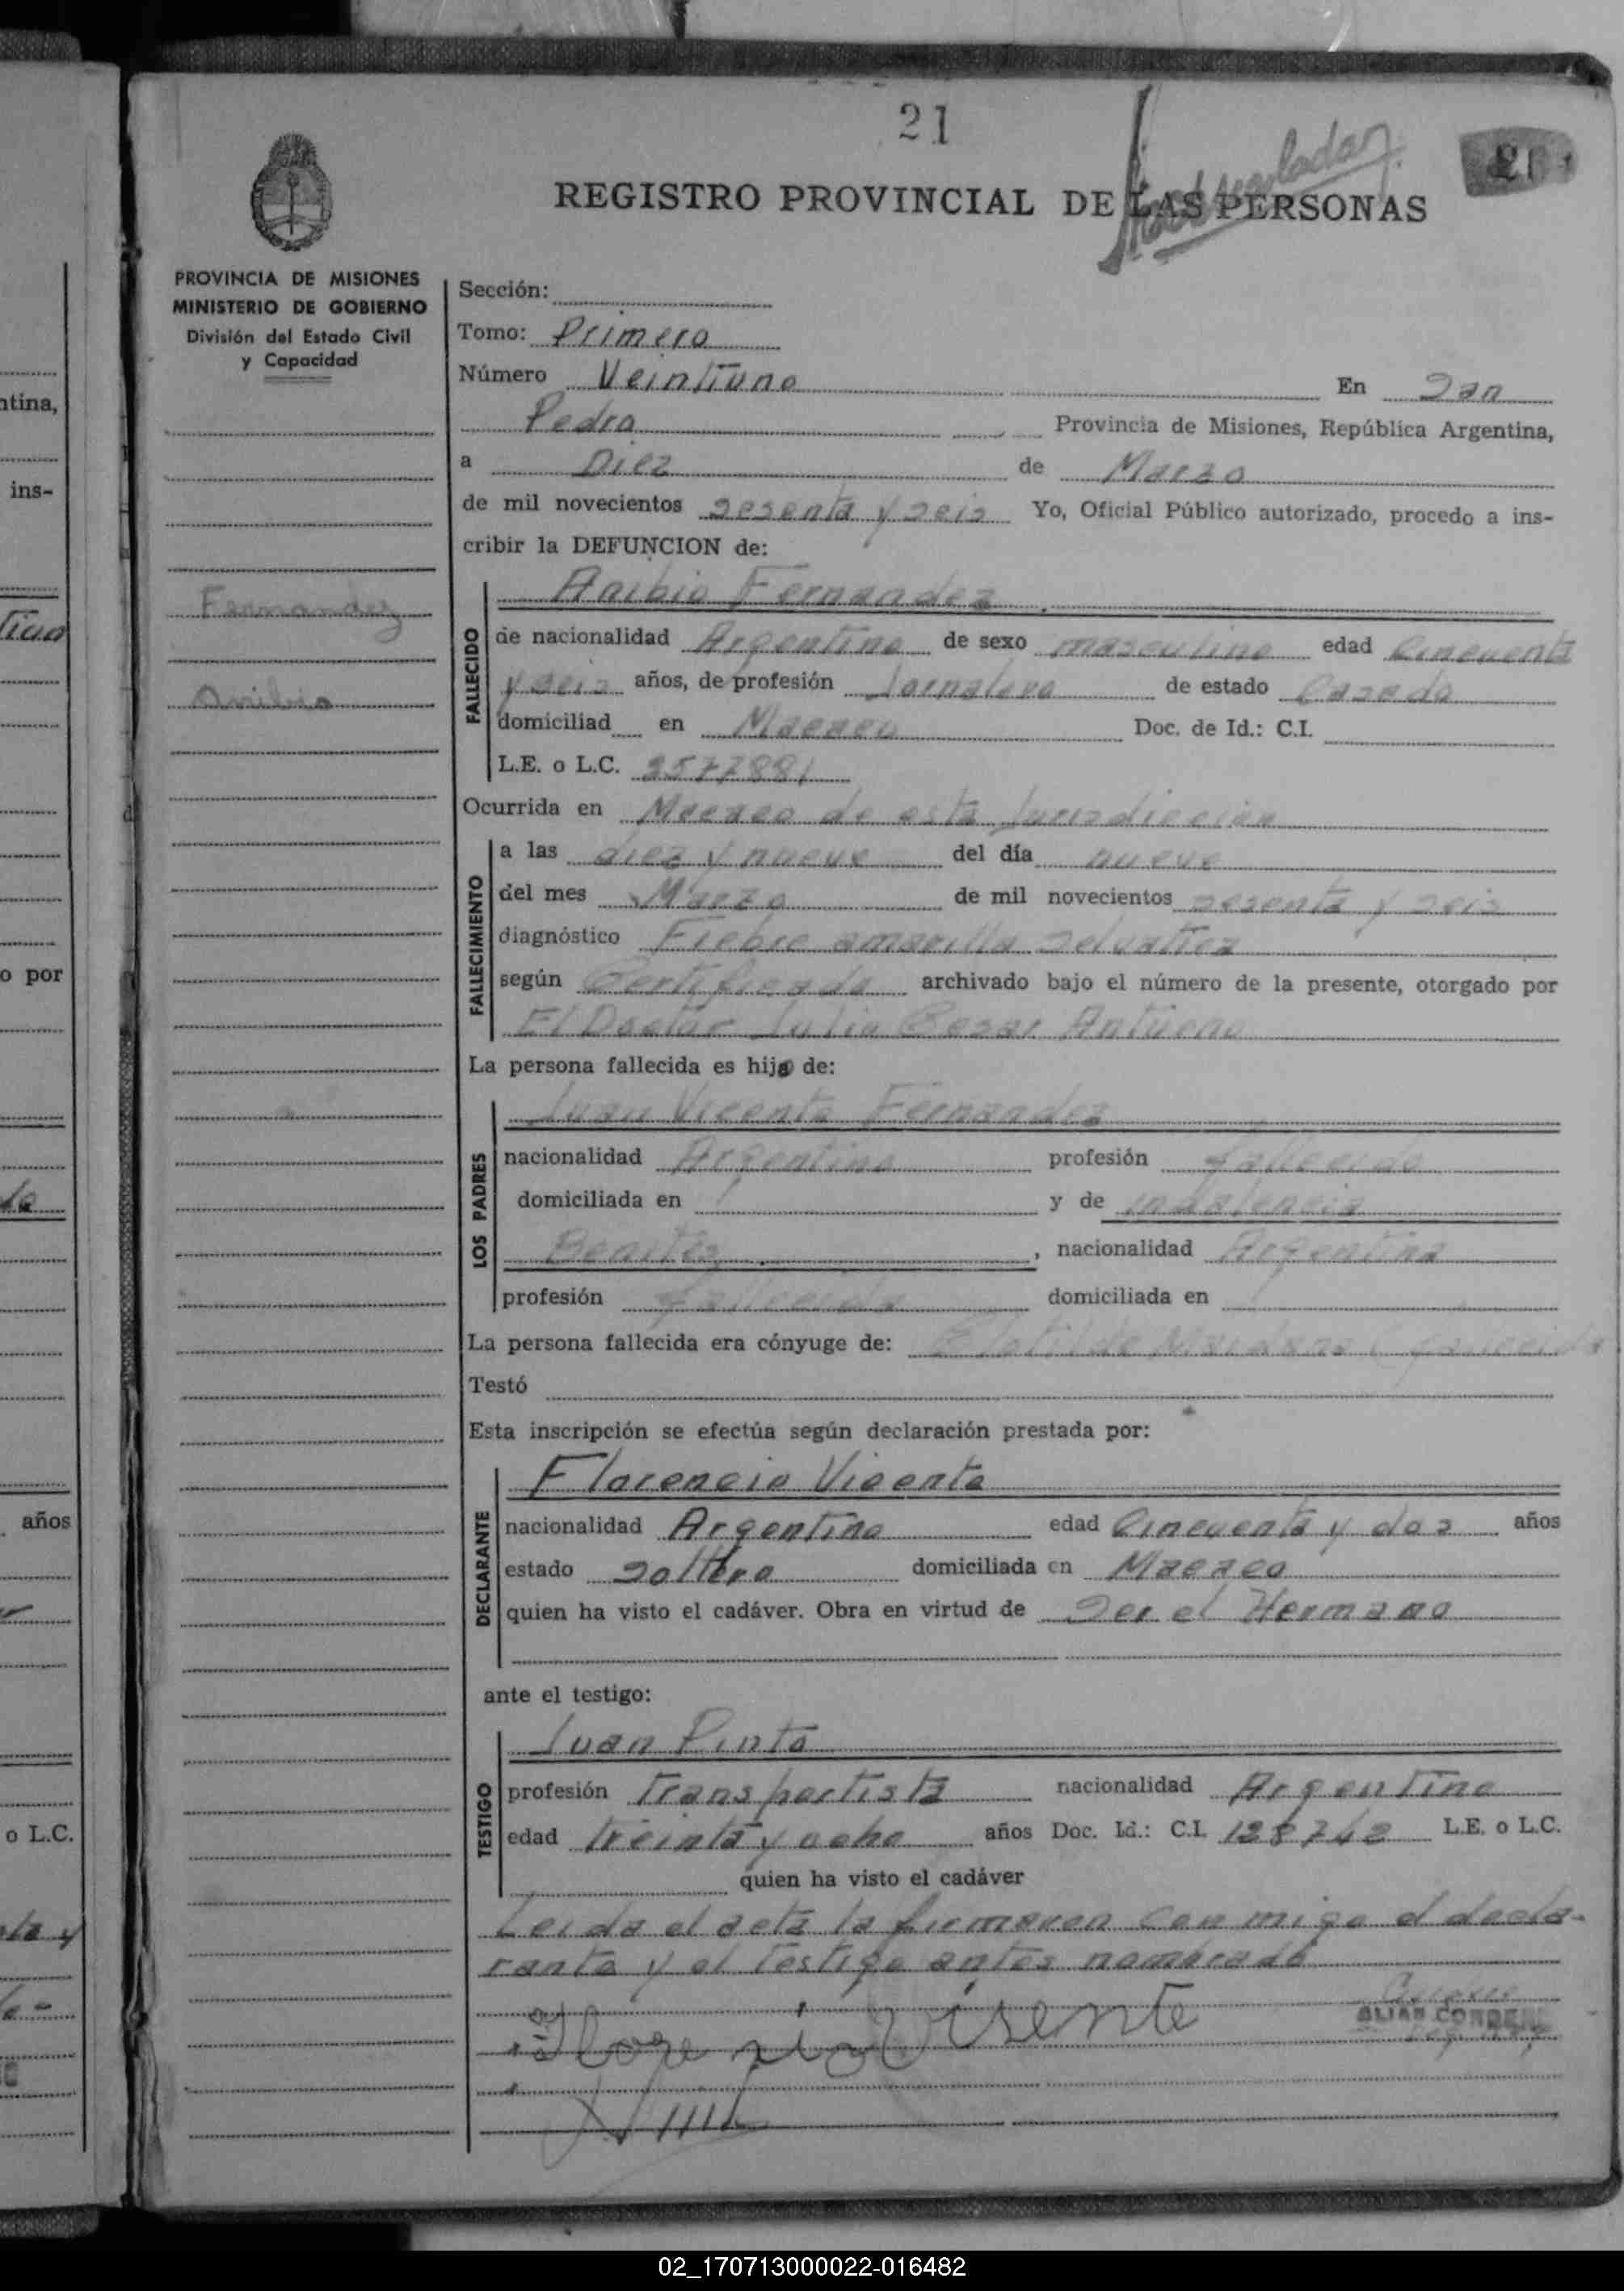 21
REGISTRO PROVINCIAL DE LAS PERSONAS
PROVINCIA DE MISIONES
MINISTERIO DE GOBIERNO
División del Estado Civil
y Capacidad
Sección:
Tomo: Primero
Número Veintiuno En San
Pedro Provincia de Misiones, República Argentina,
a Diez de Marzo
de mil novecientos sesenta y seis Yo, Oficial Público autorizado, procedo a ins-
cribir la DEFUNCION de:
Fernandez
Anibio
FALLECIDO
Anibio Fernandez
de nacionalidad Argentino de sexo masculino edad Cincuenta
y seis años, de profesión Jornalero de estado Casado
domiciliad en Macaco Doc. de Id.: C.I.
L.E. o L.C. 3577881
Ocurrida en Macaco de esta Jurisdiccion
FALLECIMIENTO
a las diez y nueve del día nueve
del mes Marzo de mil novecientos sesenta y seis
diagnóstico Fiebre amarilla selvatica
según Certificado archivado bajo el número de la presente, otorgado por
El Doctor Julio Cesar
La persona fallecida es hijo de:
LOS PADRES
Juan Vicente Fernandez
nacionalidad Argentino profesión fallecido
domiciliada en y de indalencia
Benitez, nacionalidad Argentina
profesión fallecida domiciliada en
La persona fallecida era cónyuge de: Clotilde
Testó
Esta inscripción se efectúa según declaración prestada por:
DECLARANTE
Florencio Vicente
nacionalidad Argentino edad Cincuenta y dos años
estado soltero domiciliada en Macaco
quien ha visto el cadáver. Obra en virtud de Ser el Hermano
ante el testigo:
TESTIGO
Juan Pinto
profesión Transportista nacionalidad Argentino
edad treinta y ocho años Doc. Id.: C.I. 128742 L.E. o L.C.
quien ha visto el cadáver
Leida el acta la firmaron con migo el decla-
rante y el testigo antes nombrado
Florensio Visente
ntina,
ins-
o por
años
o L.C.
02_170713000022-016482